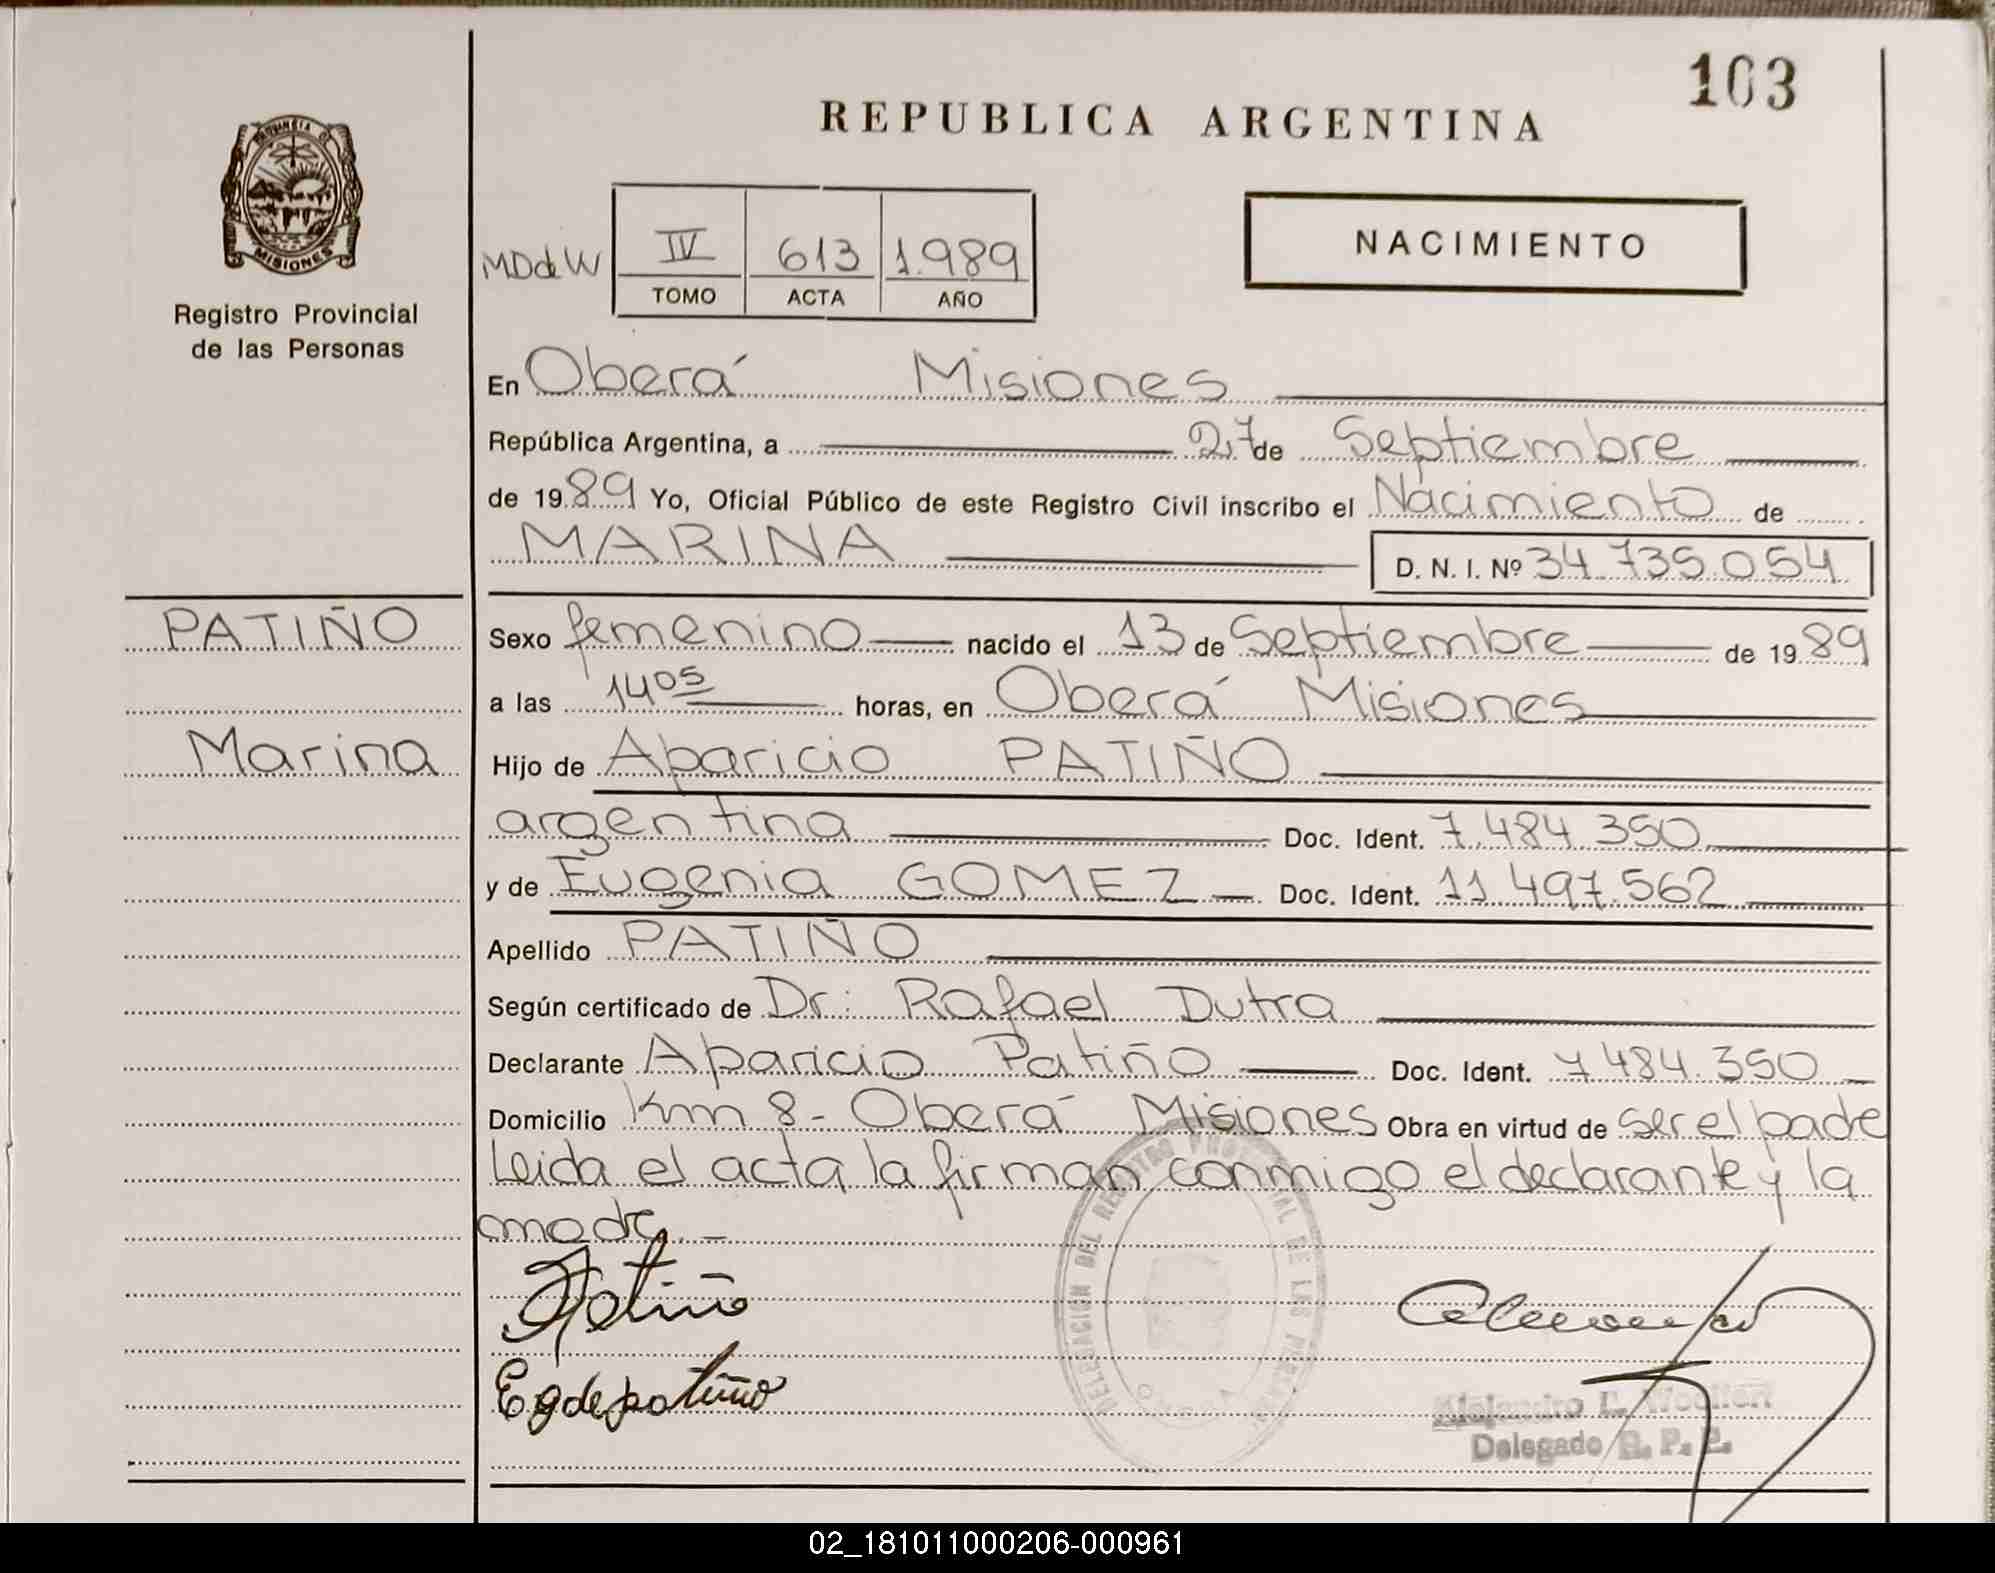 103
REPUBLICA ARGENTINA
PROVINCIA DE
MISIONES
Registro Provincial
de las Personas
NACIMIENTO
MDdeW
IV 613 1.989
TOMO ACTA AÑO
En Oberá Misiones
República Argentina, a 27 de Septiembre
de 1989 Yo, Oficial Público de este Registro Civil inscribo el Nacimiento de
MARINA D. N. I. Nº 34.735.054
PATIÑO
Marina
Sexo femenino nacido el 13 de Septiembre de 1989
a las 14 05 horas, en Oberá Misiones
Hijo de Aparicio PATIÑO
argentina Doc. Ident. 7.484.350
y de Eugenia GOMEZ Doc. Ident. 11.497.562
Apellido PATIÑO
Según certificado de Dr: Rafael Dutra
Declarante Aparicio Patiño Doc. Ident. 7.484.350
Domicilio Km 8 - Oberá Misiones Obra en virtud de ser el padre
Leida el acta la firman conmigo el declarante y la
madre. -
Patiño
E g de patiño
DELEGACION DEL REGISTRO PROVINCIAL DE LAS PERSONAS
OBERA
Alejandro E.
Delegado R. P. P.
02_181011000206-000961